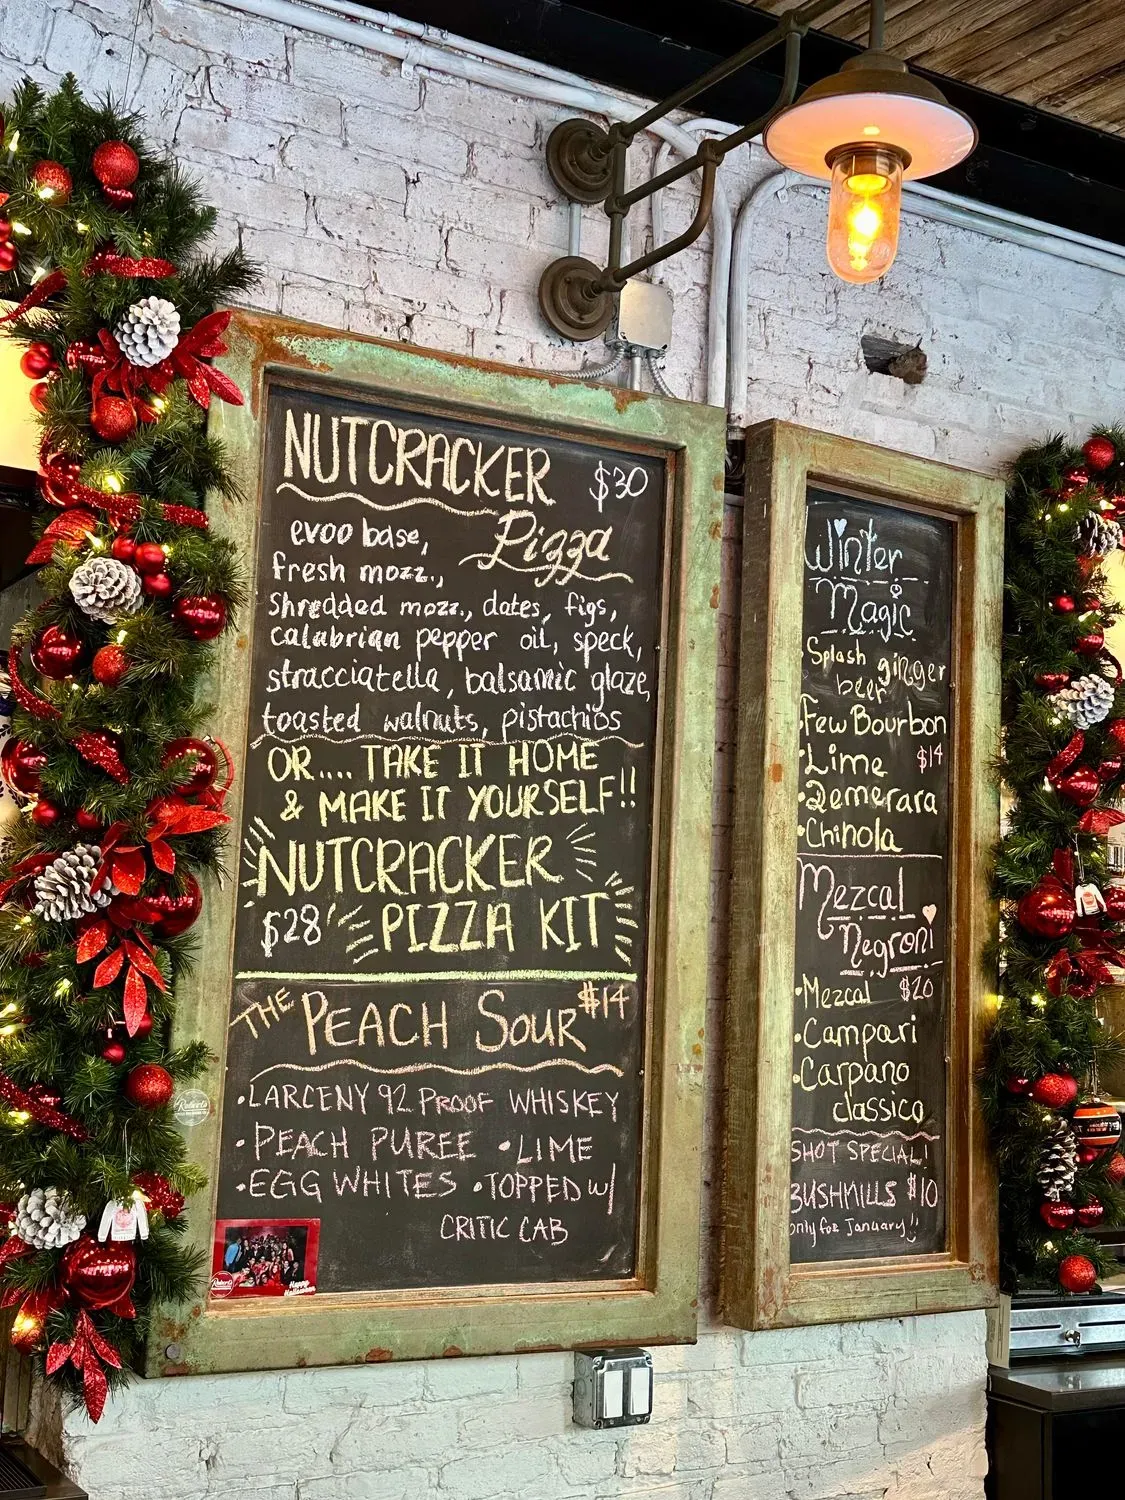 NUTCRACKER $30
Pizza
evoo base,
fresh mozz.,
shredded mozz., dates, figs,
calabrian pepper oil, speck,
stracciatella, balsamic glaze,
toasted walnuts, pistachios
OR.... TAKE IT HOME
& MAKE IT YOURSELF!!
NUTCRACKER
$28 PIZZA KIT
THE PEACH SOUR $14
•LARCENY 92 PROOF WHISKEY
•PEACH PUREE •LIME
•EGG WHITES •TOPPED w/
CRITIC CAB
Roberts
Happy
Holidays
Winter
Magic
Splash ginger
beer
•Few Bourbon
•Lime $14
•Demerara
•Chinola
Mezcal
Negroni
•Mezcal $20
•Campari
•Carpano
classico
SHOT SPECIAL!
BUSHMILLS $10
only for January!!